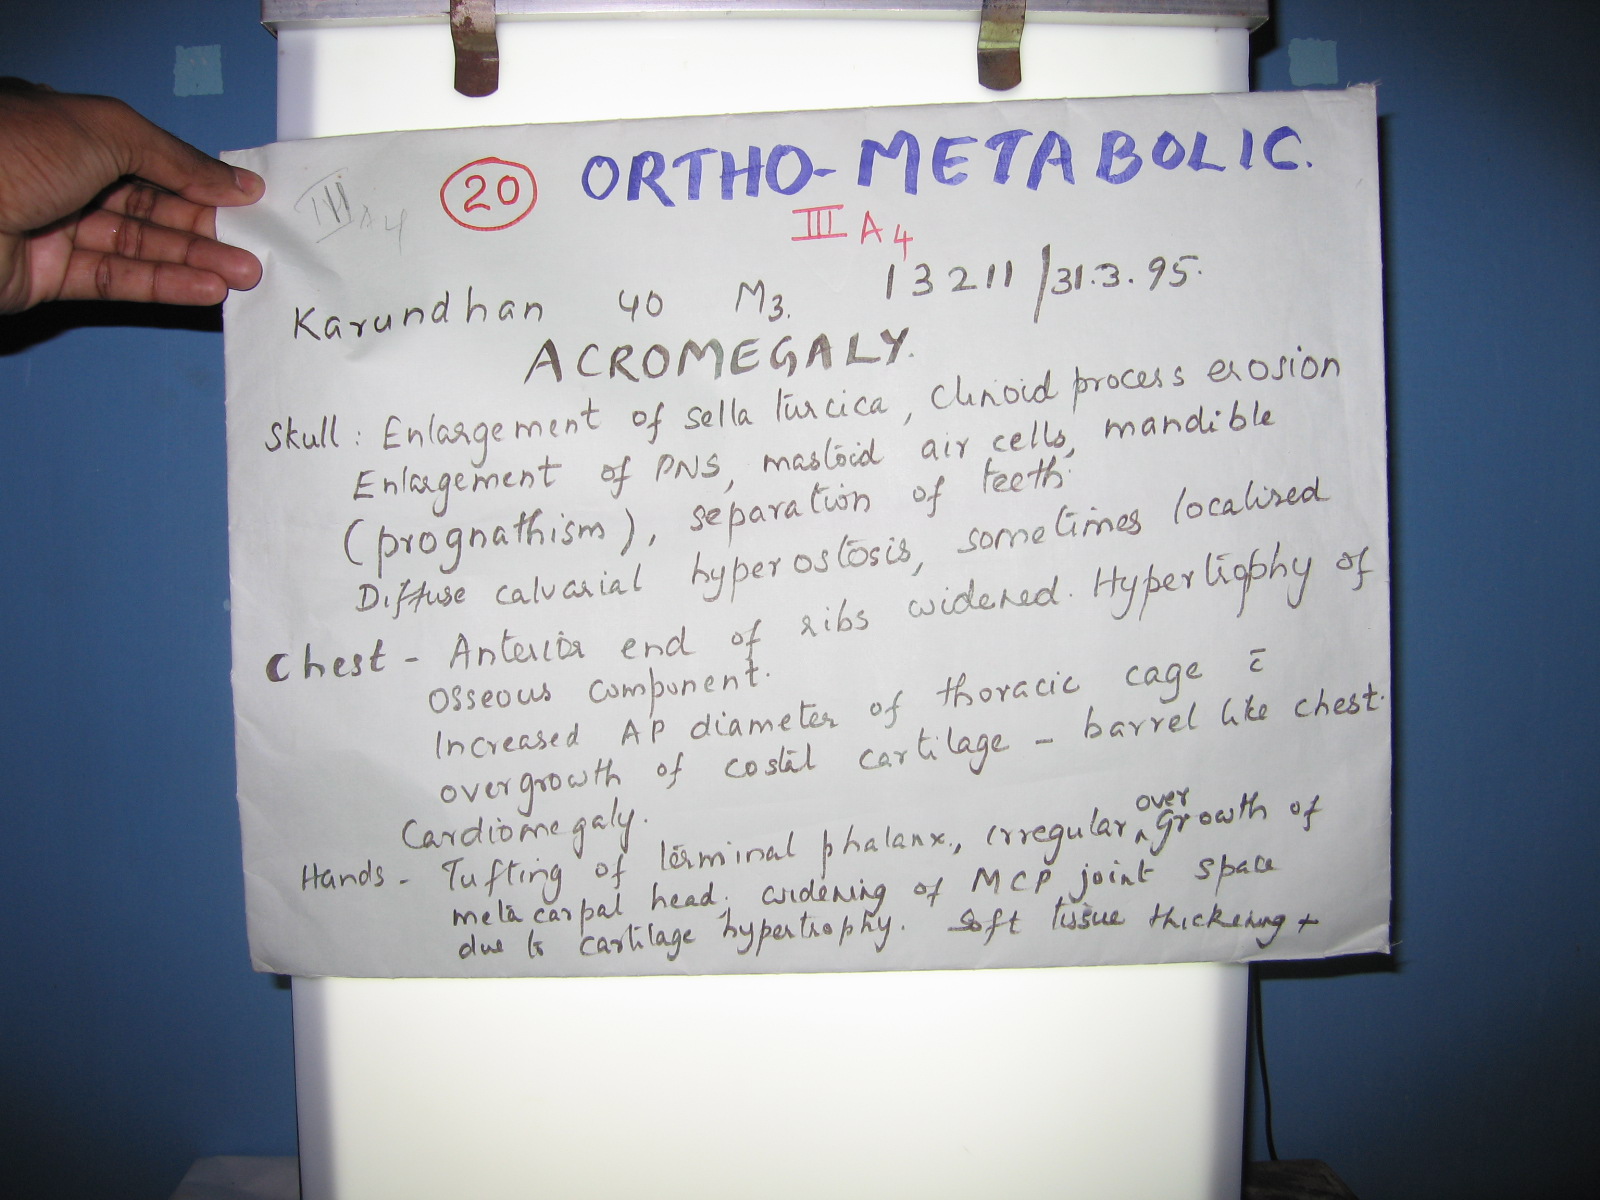 III A4
20 ORTHO-METABOLIC.
III A4
Karundhan 40 M3. 13211/31.3.95.
ACROMEGALY.
Skull: Enlargement of sella turcica, clinoid process erosion
Enlargement of PNS, mastoid air cells, mandible
(prognathism), separation of teeth.
Diffuse calvarial hyperostosis, sometimes localised
Chest - Anterior end of ribs widened. Hypertrophy of
osseous component.
Increased AP diameter of thoracic cage c̄
overgrowth of costal cartilage - barrel like chest.
Cardiomegaly.
Hands - Tufting of terminal phalanx., irregular over growth of
metacarpal head, widening of MCP joint space
due to cartilage hypertrophy. Soft tissue thickening +